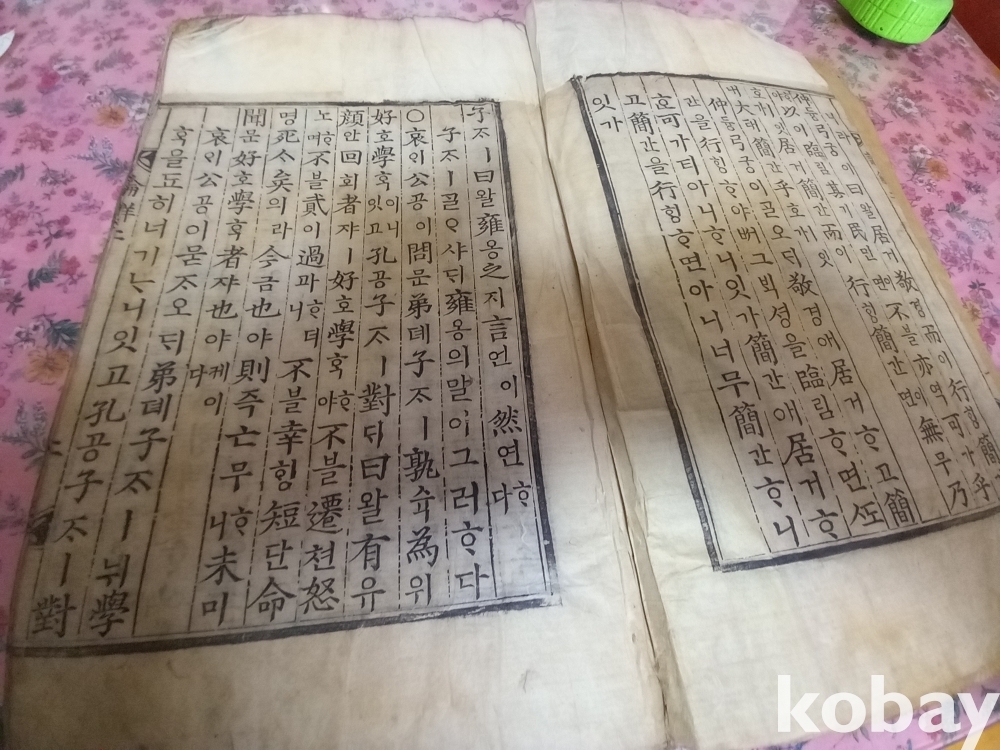 仲듕弓궁이曰왈居거敬경而이行ᄒᆡᆼ簡간
ᄒᆞ야以이臨림其기民민이면不블亦역可가乎
호잇가居거簡간而이行ᄒᆡᆼ簡간이면無무乃
내大태簡간乎호잇가
仲듕弓궁이ᄀᆞᆯ오ᄃᆡ敬경애居거ᄒᆞ고簡
간을行ᄒᆡᆼᄒᆞ야ᄡᅥ그ᄇᆡᆨ셩을臨림ᄒᆞ면ᄯᅩ
ᄒᆞᆫ可가티아니ᄒᆞ니잇가簡간애居거ᄒᆞ
고簡간을行ᄒᆡᆼᄒᆞ면아니너무簡간ᄒᆞ니
잇가
子ᄌᆞㅣ曰왈雍옹之지言언이然연ᄒᆞ다
子ᄌᆞㅣᄀᆞᆯᄋᆞ샤ᄃᆡ雍옹의말이그러ᄒᆞ다
○哀ᄋᆡ公공이問문弟뎨子ᄌᆞㅣ孰슉為위
好호學ᄒᆞᆨ이니잇고孔공子ᄌᆞㅣ對ᄃᆡ曰왈有유
顔안回회者쟈ㅣ好호學ᄒᆞᆨᄒᆞ야不블遷쳔怒
노ᄒᆞ며不블貳이過과ᄒᆞ더니不블幸ᄒᆡᆼ短단命
명死ᄉᆞ矣의라今금也야則즉亡무ᄒᆞ니未미
聞문好호學ᄒᆞᆨ者쟈也야케이다
哀ᄋᆡ公공이묻ᄌᆞ오ᄃᆡ弟뎨子ᄌᆞㅣ뉘學
ᄒᆞᆨ을됴히너기ᄂᆞ니잇고孔공子ᄌᆞㅣ對
kobay